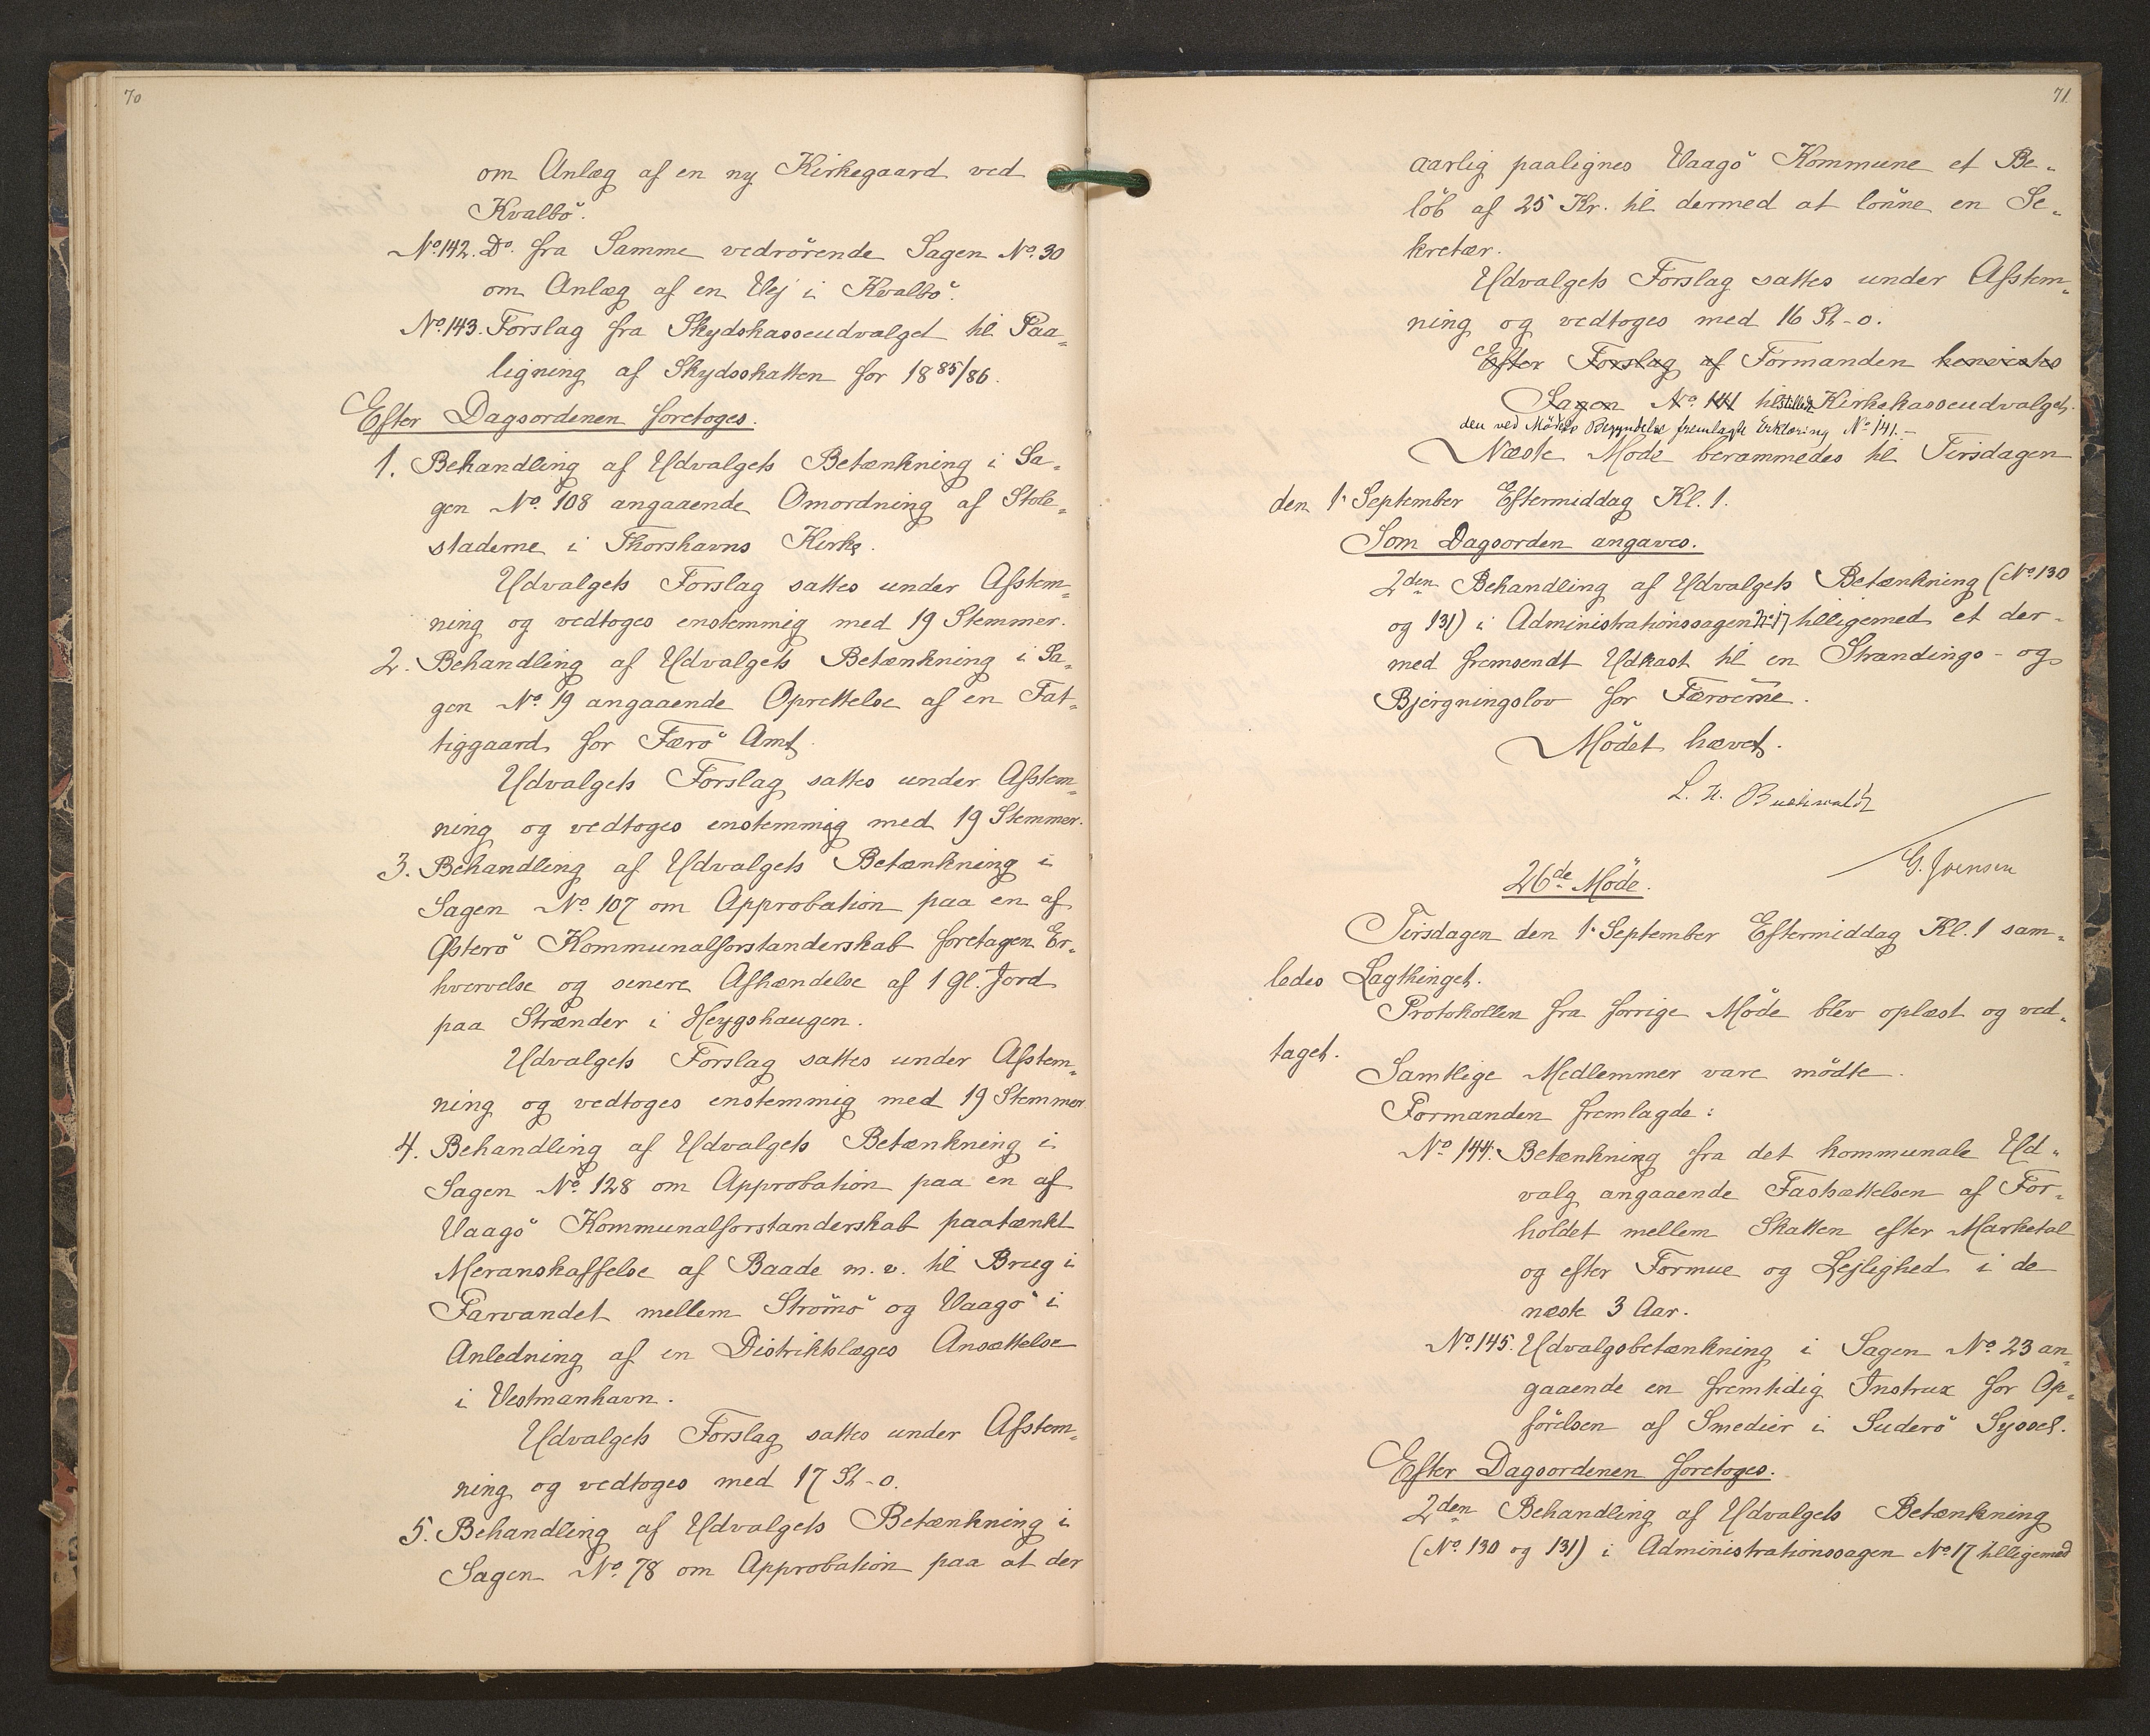 70
om Anlæg af en ny Kirkegaard ved
Kvalbö.
No. 142. Do. fra Samme vedrörende Sagen No. 30
om Anlæg af en Vej i Kvalbö.
No. 143. Forslag fra Skydskasseudvalget til Paa-
ligning af Skydsskatten for 1885/86.
Efter Dagsordenen foretoges.
1. Behandling af Udvalgets Betænkning i Sa-
gen No. 108 angaaende Omordning af Stole-
staderne i Thorshavns Kirke.
Udvalgets Forslag sattes under Afstem-
ning og vedtoges enstemmig med 19 Stemmer.
2. Behandling af Udvalgets Betænkning i Sa-
gen No. 19 angaaende Oprettelse af en Fat-
tiggaard for Færö Amt.
Udvalgets Forslag sattes under Afstem-
ning og vedtoges enstemmig med 19 Stemmer.
3. Behandling af Udvalgets Betænkning i
Sagen No. 107 om Approbation paa en af
Østerö Kommunalforstanderskab foretagen Er-
hvervelse og senere Afhændelse af 1 Gl. Jord
paa Strænder i Heygshaugen.
Udvalgets Forslag sattes under Afstem-
ning og vedtoges enstemmig med 19 Stemmer
4. Behandling af Udvalgets Betænkning i
Sagen No. 128 om Approbation paa en af
Vaagö Kommunalforstanderskab paatænkt
Meranskaffelse af Baade m.v. til Brug i
Farvandet mellem Strömö og Vaagö i
Anledning af en Distriktslæges Ansættelse
i Vestmanhavn.
Udvalgets Forslag sattes under Afstem-
ning og vedtoges med 17 St-0.
5. Behandling af Udvalgets Betænkning i
Sagen No. 78 om Approbation paa at der
71.
aarlig paalignes Vaagö Kommune et Be-
löb af 25 Kr. til dermed at lönne en Se-
kretær.
Udvalgets Forslag sattes under Afstem-
ning og vedtoges med 16 St-0.
Efter Forslag af Formanden henvistes
Sagen No. 141 tilstillede Kirkekasseudvalget
den ved Mödets Begyndelse fremlagte Erklæring No. 141.-
Næste Möde berammedes til Tirsdagen
den 1. September Eftermiddag Kl. 1.
Som Dagsorden angaves.
2den Behandling af Udvalgets Betænkning (No. 130
og 131) i Administrationssagen No. 17 tilligemed et der-
med fremsendt Udkast til en Strandings- og
Bjergningslov for Færöerne.
Mödet hævet.
L. H. Buchwaldt
G. Joensen
26de Möde.
Tirsdagen den 1. September Eftermiddag Kl. 1 sam-
ledes Lagthinget.
Protokollen fra forrige Möde blev oplæst og ved-
taget.
Samtlige Medlemmer vare mödte.
Formanden fremlagde:
No. 144. Betænkning fra det kommunale Ud-
valg angaaende Fastsættelsen af For-
holdet mellem Skatten efter Marketal
og efter Formue og Lejlighed i de
næste 3 Aar.
No. 145. Udvalgsbetænkning i Sagen No. 23 an-
gaaende en fremtidig Instrux for Op-
förelsen af Smedier i Suderö Syssel.
Efter Dagsordenen foretoges.
2den Behandling af Udvalgets Betænkning
(No. 130 og 131) i Administrationssagen No. 17 tilligemed